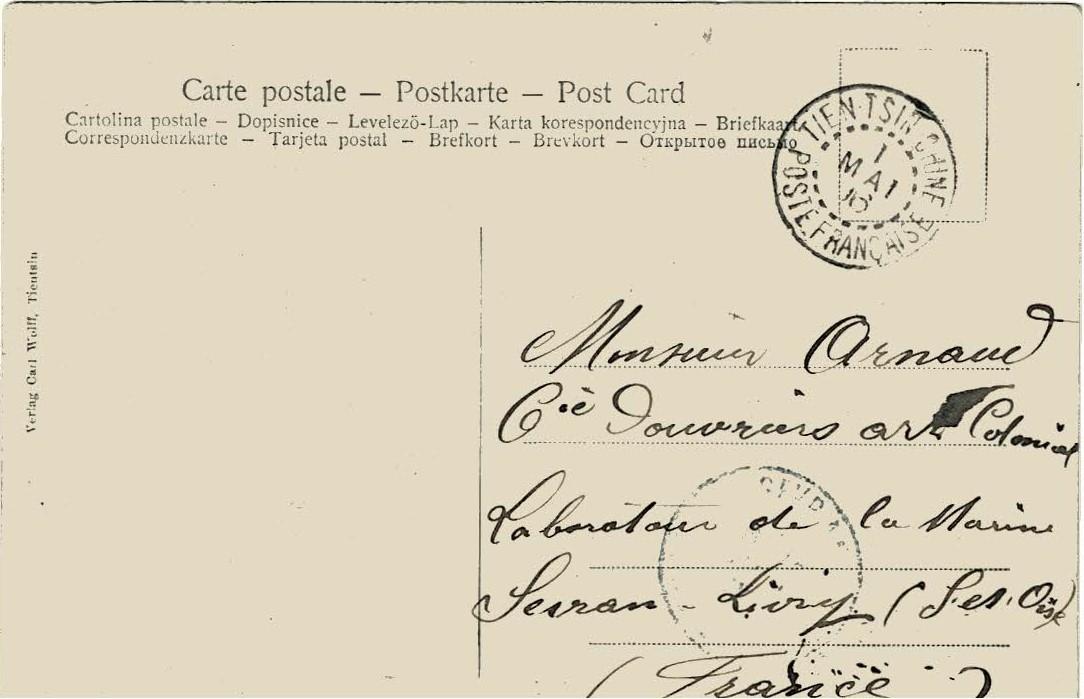 Carte postale — Postkarte — Post Card
Cartolina postale — Dopisnice — Levelezö-Lap — Karta korespondencyjna — Briefkaart
Correspondenzkarte — Tarjeta postal — Brefkort — Brevkort — Открытое письмо
TIEN-TSIN CHINE
1
MAI
06
POSTE FRANÇAISE
Verlag Carl Wolff, Tientsin
Monsieur Arnaud
Cie D'ouvriers art Colonial
Laboratoire de la Marine
Sevran - Livry (S. et. Oise)
(France)